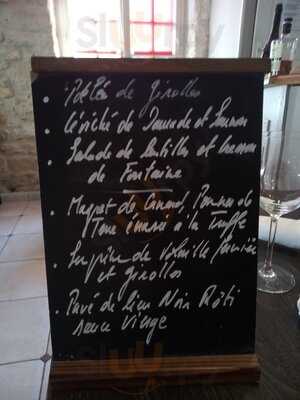 Pâté de Girolles
Céviché de Daurade et Saumon
Salade de Lentilles et
de Fontaine
Magret de Canard, Pommes de
Terre écrasée à la Truffe
Suprême de Volaille
et Girolles
Pavé de Lieu Noir Rôti
sauce Vierge